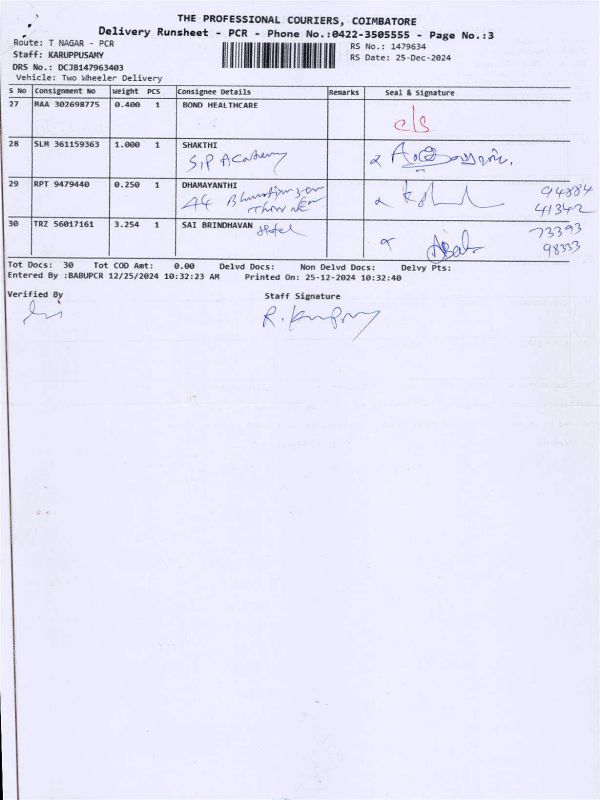 THE PROFESSIONAL COURIERS, COIMBATORE
Delivery Runsheet - PCR - Phone No.:0422-3505555 - Page No.:3
Route: T NAGAR - PCR
RS No.: 1479634
Staff: KARUPPUSAMY
RS Date: 25-Dec-2024
DRS No.: DCJB147963403
Vehicle: Two Wheeler Delivery
S No Consignment No Weight PCS Consignee Details Remarks Seal & Signature
27 MAA 302698775 0.400 1 BOND HEALTHCARE
c/s
28 SLM 361159363 1.000 1 SHAKTHI
S.P Academy
29 RPT 9479440 0.250 1 DHAMAYANTHI
44
94884
41342
30 TRZ 56017161 3.254 1 SAI BRINDHAVAN Hotel
73393
98333
Tot Docs: 30 Tot COD Amt: 0.00 Delvd Docs: Non Delvd Docs: Delvy Pts:
Entered By :BABUPCR 12/25/2024 10:32:23 AM Printed On: 25-12-2024 10:32:40
Verified By Staff Signature